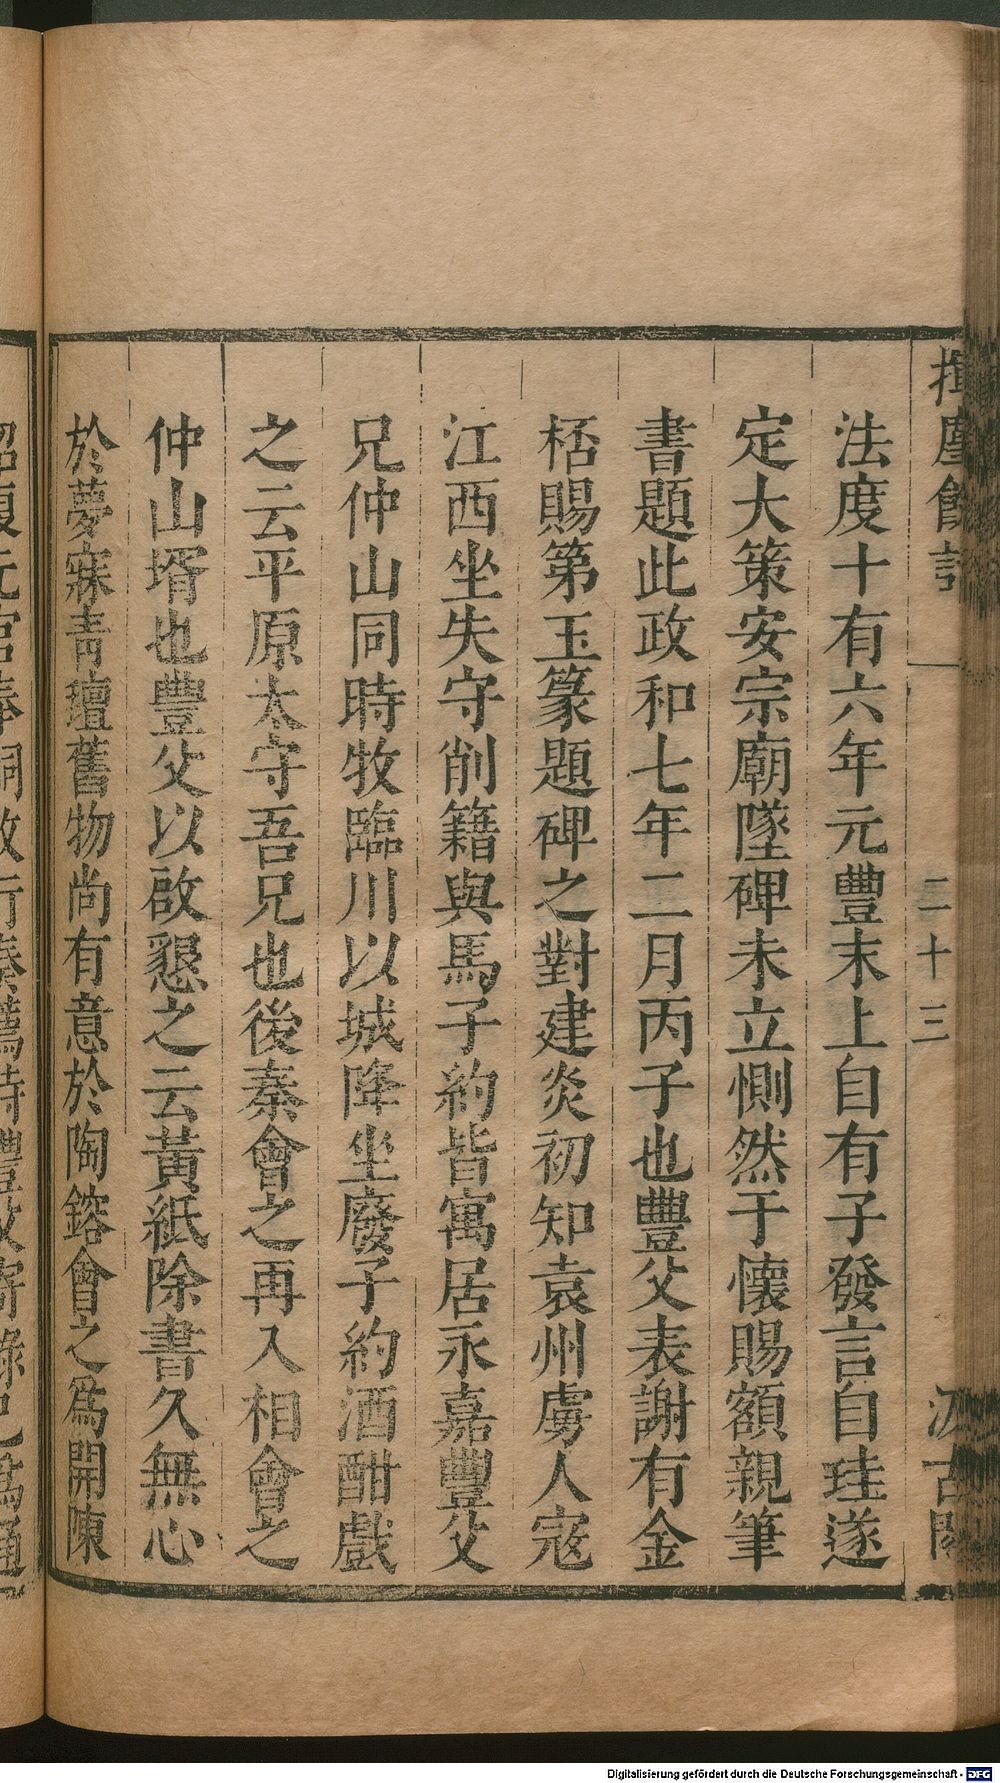 揮塵餘話
二十三
汲古閣
法度十有六年元豐末上自有子發言自珪遂
定大策安宗廟墜碑未立惻然于懷賜額親筆
書題此政和七年二月丙子也豐父表謝有金
栝賜第玉篆題碑之對建炎初知袁州虜人寇
江西坐失守削籍與馬子約皆寓居永嘉豐父
兄仲山同時牧臨川以城降坐廢子約酒酣戲
之云平原太守吾兄也後秦會之再入相會之
仲山壻也豐父以啟懇之云黃紙除書久無心
於夢寐青氊舊物尚有意於陶鎔會之為開陳
Digitalisierung gefördert durch die Deutsche Forschungsgemeinschaft - DFG